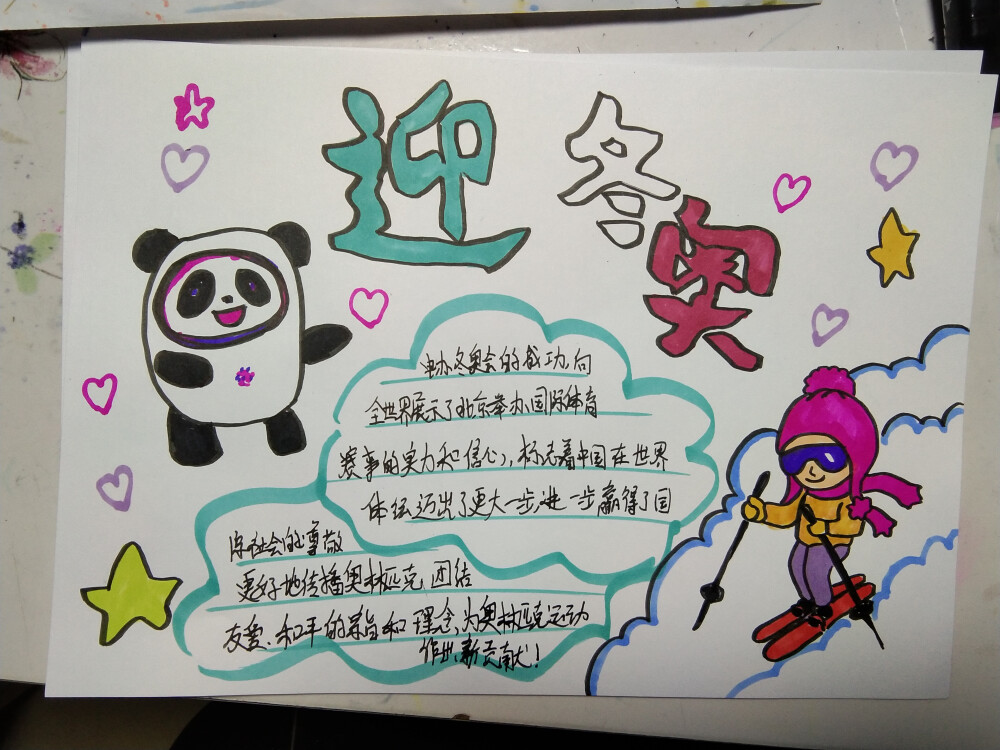 迎冬奥
申办冬奥会的成功,向
全世界展示了北京举办国际体育
赛事的实力和信心,标志着中国在世界
体坛迈出了更大一步,进一步赢得了国
际社会的尊敬
更好地传播奥林匹克 团结
友爱、和平的宗旨和理念,为奥林匹克运动
作出新贡献!